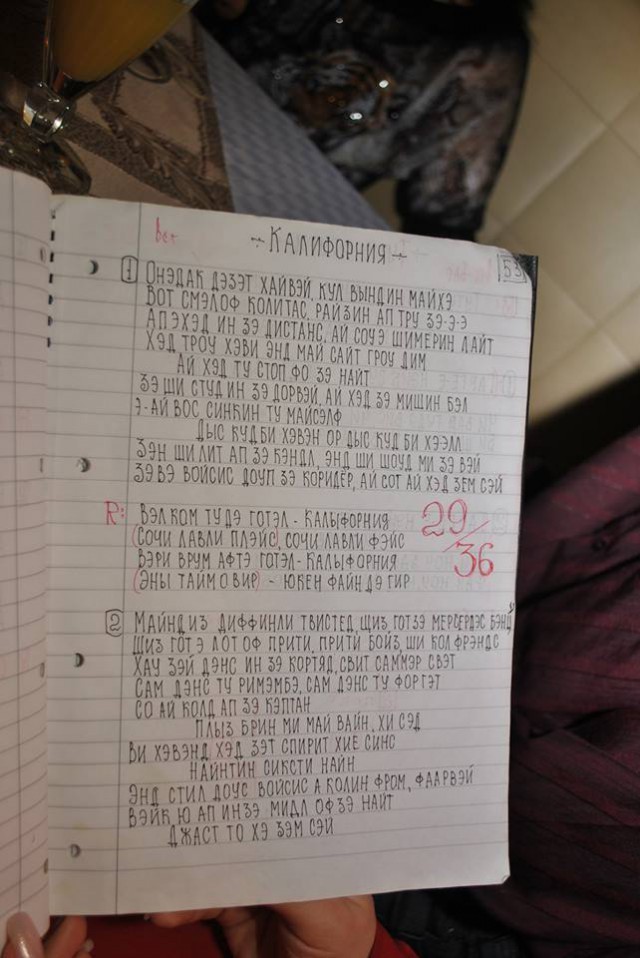 Вет
÷ КАЛИФОРНИЯ ÷
53
1 ОНЭДАК ДЭЗЭТ ХАЙВЭЙ, КУЛ ВЫНДИН МАЙХЭ
ВОТ СМЭЛОФ КОЛИТАС, РАЙЗИН АП ТРУ ЗЭ-Э-Э
АПЭХЭД ИН ЗЭ ДИСТАНС, АЙ СОУЭ ШИМЕРИН ЛАЙТ
ХЭД ТРОУ ХЭВИ ЭНД МАЙ САЙТ ГРОУ ДИМ
АЙ ХЭД ТУ СТОП ФО ЗЭ НАЙТ
ЗЭ ШИ СТУД ИН ЗЭ ДОРВЭЙ, АЙ ХЭД ЗЭ МИШИН БЭЛ
Э-АЙ ВОС СИНКИН ТУ МАЙСЭЛФ
ДЫС КУД БИ ХЭВЭН ОР ДЫС КУД БИ ХЭЭЛЛ
ЗЭН ШИ ЛИТ АП ЗЭ КЭНДЛ, ЭНД ШИ ШОУД МИ ЗЭ ВЭЙ
ЗЭ ВЭ ВОЙСИС ДОУП ЗЭ КОРИДЁР, АЙ СОТ АЙ ХЭД ЗЕМ СЭЙ
R: ВЭЛКОМ ТУ ДЭ ГОТЭЛ - КАЛЫФОРНИЯ
(СОЧИ ЛАВЛИ ПЛЭЙС), СОЧИ ЛАВЛИ ФЭЙС
ВЭРИ ВРУМ АФТЭ ГОТЭЛ - КАЛЫФОРНИЯ
(ЭНЫ ТАЙМ О ВИР) - ЮКЕН ФАЙН ДЭ ГИР
29/36
2 МАЙНД ИЗ ДИФФИНЛИ ТВИСТЕД, ЩИЗ ГОТ ЗЭ МЕРСЕРДЭС БЭНД
ШИЗ ГОТ Э ЛОТ ОФ ПРИТИ, ПРИТИ БОЙЗ, ШИ КОЛ ФРЭНДС
ХАУ ЗЭЙ ДЭНС ИН ЗЭ КОРТЯД, СВИТ САММЭР СВЭТ
САМ ДЭНС ТУ РИМЭМБЭ, САМ ДЭНС ТУ ФОРГЭТ
СО АЙ КОЛД АП ЗЭ КЭПТАН
ПЛЫЗ БРИН МИ МАЙ ВАЙН, ХИ СЭД
ВИ ХЭВЭНД ХЭД ЗЭТ СПИРИТ ХИЕ СИНС
НАЙНТИН СИКСТИ НАЙН
ЭНД СТИЛ ДОУС ВОЙСИС А КОЛИН ФРОМ, ФААРВЭЙ
ВЭЙК Ю АП ИН ЗЭ МИДЛ ОФ ЗЭ НАЙТ
ДЖАСТ ТО ХЭ ЗЭМ СЭЙ